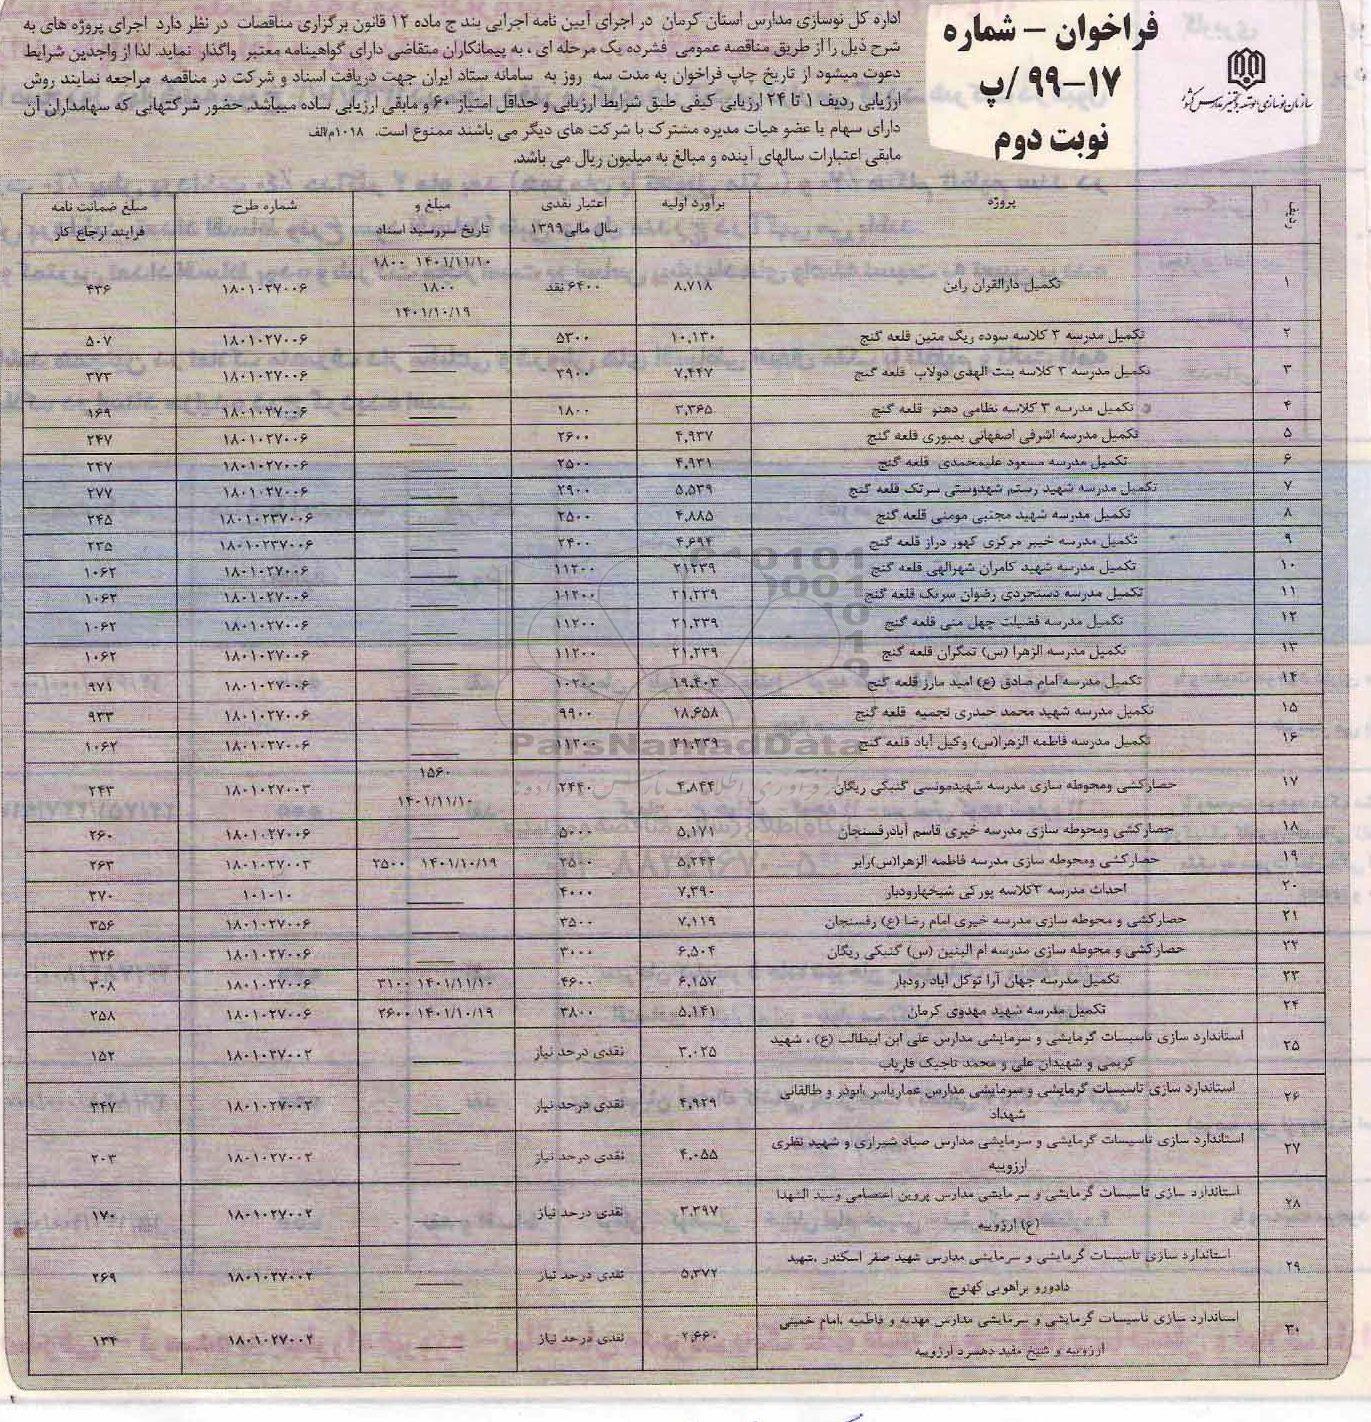 فراخوان – شماره
۹۹-۱۷/پ
نوبت دوم
سازمان نوسازی، توسعه و تجهیز مدارس کشور
اداره کل نوسازی مدارس استان کرمان در اجرای آیین نامه اجرایی بند ج ماده ۱۲ قانون برگزاری مناقصات در نظر دارد اجرای پروژه های به
شرح ذیل را از طریق مناقصه عمومی فشرده یک مرحله ای ، به پیمانکاران متقاضی دارای گواهینامه معتبر واگذار نماید. لذا از واجدین شرایط
دعوت میشود از تاریخ چاپ فراخوان به مدت سه روز به سامانه ستاد ایران جهت دریافت اسناد و شرکت در مناقصه مراجعه نمایند روش
ارزیابی ردیف ۱ تا ۲۴ ارزیابی کیفی طبق شرایط ارزیابی و حداقل امتیاز ۶۰ و مابقی ارزیابی ساده میباشد. حضور شرکتهایی که سهامداران آن
دارای سهام یا عضو هیات مدیره مشترک با شرکت های دیگر می باشند ممنوع است. ۱۰۱۸م/الف
مابقی اعتبارات سالهای آینده و مبالغ به میلیون ریال می باشد.
ردیف پروژه برآورد اولیه اعتبار نقدی سال مالی۱۳۹۹ مبلغ و تاریخ سررسید اسناد شماره طرح مبلغ ضمانت نامه فرایند ارجاع کار
۱ تکمیل دارالقران راین ۸.۷۱۸ ۶۴۰۰ نقد ۱۴۰۱/۱۱/۱۰ ۱۸۰۰ ۱۸۰۰ ۱۴۰۱/۱۰/۱۹ ۱۸۰۱۰۲۷۰۰۶ ۴۳۶
۲ تکمیل مدرسه ۳ کلاسه سوده ریگ متین قلعه گنج ۱۰.۱۳۰ ۵۳۰۰ ۱۸۰۱۰۲۷۰۰۶ ۵۰۷
۳ تکمیل مدرسه ۳ کلاسه بنت الهدی دولاب قلعه گنج ۷,۴۴۷ ۳۹۰۰ ۱۸۰۱۰۲۷۰۰۶ ۳۷۳
۴ تکمیل مدرسه ۳ کلاسه نظامی دهنو قلعه گنج ۳,۳۶۵ ۱۸۰۰ ۱۸۰۱۰۲۷۰۰۶ ۱۶۹
۵ تکمیل مدرسه اشرفی اصفهانی بمپوری قلعه گنج ۴,۹۳۷ ۲۶۰۰ ۱۸۰۱۰۲۷۰۰۶ ۲۴۷
۶ تکمیل مدرسه مسعود علیمحمدی قلعه گنج ۴,۹۳۱ ۲۵۰۰ ۱۸۰۱۰۲۷۰۰۶ ۲۴۷
۷ تکمیل مدرسه شهید رستم شهدوستی سرتک قلعه گنج ۵,۵۳۹ ۲۹۰۰ ۱۸۰۱۰۲۷۰۰۶ ۲۷۷
۸ تکمیل مدرسه شهید مجتبی مومنی قلعه گنج ۴,۸۸۵ ۲۵۰۰ ۱۸۰۱۰۲۳۷۰۰۶ ۲۴۵
۹ تکمیل مدرسه خیبر مرکزی کهور دراز قلعه گنج ۴,۶۹۴ ۲۴۰۰ ۱۸۰۱۰۲۳۷۰۰۶ ۲۳۵
۱۰ تکمیل مدرسه شهید کامران شهرالهی قلعه گنج ۲۱۲۳۹ ۱۱۲۰۰ ۱۸۰۱۰۲۷۰۰۶ ۱۰۶۲
۱۱ تکمیل مدرسه دستجردی رضوان سرتک قلعه گنج ۲۱,۲۳۹ ۱۱۲۰۰ ۱۸۰۱۰۲۷۰۰۶ ۱۰۶۲
۱۲ تکمیل مدرسه فضیلت چهل منی قلعه گنج ۲۱,۲۳۹ ۱۱۲۰۰ ۱۸۰۱۰۲۷۰۰۶ ۱۰۶۲
۱۳ تکمیل مدرسه الزهرا (س) تمگران قلعه گنج ۲۱,۲۳۹ ۱۱۲۰۰ ۱۸۰۱۰۲۷۰۰۶ ۱۰۶۲
۱۴ تکمیل مدرسه امام صادق (ع) امید مارز قلعه گنج ۱۹,۴۰۳ ۱۰۲۰۰ ۱۸۰۱۰۲۷۰۰۶ ۹۷۱
۱۵ تکمیل مدرسه شهید محمد حیدری نجمیه قلعه گنج ۱۸,۶۵۸ ۹۹۰۰ ۱۸۰۱۰۲۷۰۰۶ ۹۳۳
۱۶ تکمیل مدرسه فاطمه الزهرا(س) وکیل آباد قلعه گنج ۲۱,۲۳۹ ۱۱۲۰۰ ۱۸۰۱۰۲۷۰۰۶ ۱۰۶۲
۱۷ حصارکشی ومحوطه سازی مدرسه شهیدمونسی گنبکی ریگان ۴,۸۴۴ ۲۴۴۰ ۱۵۶۰ ۱۴۰۱/۱۱/۱۰ ۱۸۰۱۰۲۷۰۰۳ ۲۴۳
۱۸ حصارکشی ومحوطه سازی مدرسه خیری قاسم آبادرفسنجان ۵,۱۷۱ ۵۰۰۰ ۱۸۰۱۰۲۷۰۰۶ ۲۶۰
۱۹ حصارکشی ومحوطه سازی مدرسه فاطمه الزهرا(س)رابر ۵,۲۴۴ ۲۵۰۰ ۱۴۰۱/۱۰/۱۹ ۲۵۰۰ ۱۸۰۱۰۲۷۰۰۳ ۲۶۳
۲۰ احداث مدرسه ۲کلاسه پورکی شیخهارودبار ۷,۳۹۰ ۴۰۰۰ ۱۰۱۰۱۰ ۳۷۰
۲۱ حصارکشی و محوطه سازی مدرسه خیری امام رضا (ع) رفسنجان ۷,۱۱۹ ۳۵۰۰ ۱۸۰۱۰۲۷۰۰۶ ۳۵۶
۲۲ حصارکشی و محوطه سازی مدرسه ام البنین (س) گنبکی ریگان ۶,۵۰۴ ۳۰۰۰ ۱۸۰۱۰۲۷۰۰۶ ۳۲۶
۲۳ تکمیل مدرسه جهان آرا توکل آباد رودبار ۶,۱۵۷ ۴۶۰۰ ۱۴۰۱/۱۱/۱۰ ۳۱۰۰ ۱۸۰۱۰۲۷۰۰۶ ۳۰۸
۲۴ تکمیل مدرسه شهید مهدوی کرمان ۵,۱۴۱ ۳۸۰۰ ۱۴۰۱/۱۰/۱۹ ۲۶۰۰ ۱۸۰۱۰۲۷۰۰۶ ۲۵۸
۲۵ استاندارد سازی تاسیسات گرمایشی و سرمایشی مدارس علی ابن ابیطالب (ع) ، شهید کریمی و شهیدان علی و محمد تاجیک فاریاب ۳,۰۲۵ نقدی درحد نیاز ۱۸۰۱۰۲۷۰۰۲ ۱۵۲
۲۶ استاندارد سازی تاسیسات گرمایشی و سرمایشی مدارس عماریاسر ،ابوذر و طالقانی شهداد ۴,۹۲۹ نقدی درحد نیاز ۱۸۰۱۰۲۷۰۰۲ ۲۴۷
۲۷ استاندارد سازی تاسیسات گرمایشی و سرمایشی مدارس صیاد شیرازی و شهید نظری ارزوییه ۴,۰۵۵ نقدی درحد نیاز ۱۸۰۱۰۲۷۰۰۲ ۲۰۳
۲۸ استاندارد سازی تاسیسات گرمایشی و سرمایشی مدارس پروین اعتصامی وسید الشهدا (ع) ارزوییه ۳,۳۹۷ نقدی درحد نیاز ۱۸۰۱۰۲۷۰۰۲ ۱۷۰
۲۹ استاندارد سازی تاسیسات گرمایشی و سرمایشی مدارس شهید صفر اسکندر ،شهید دادورو براهویی کهنوج ۵,۳۷۲ نقدی درحد نیاز ۱۸۰۱۰۲۷۰۰۲ ۲۶۹
۳۰ استاندارد سازی تاسیسات گرمایشی و سرمایشی مدارس مهدیه و فاطمیه ،امام خمینی ارزوییه و شیخ مفید دهسرد ارزوییه ۲,۶۶۰ نقدی درحد نیاز ۱۸۰۱۰۲۷۰۰۲ ۱۳۴
ParsNamadData